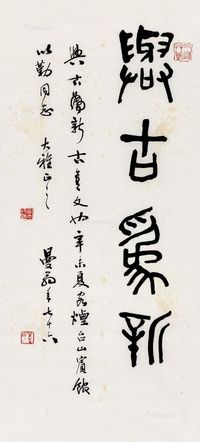 與古為新
與古為新 吉金文也 辛未夏客煙台山賓館
以勤同志 大雅正之
曼翁年七十六